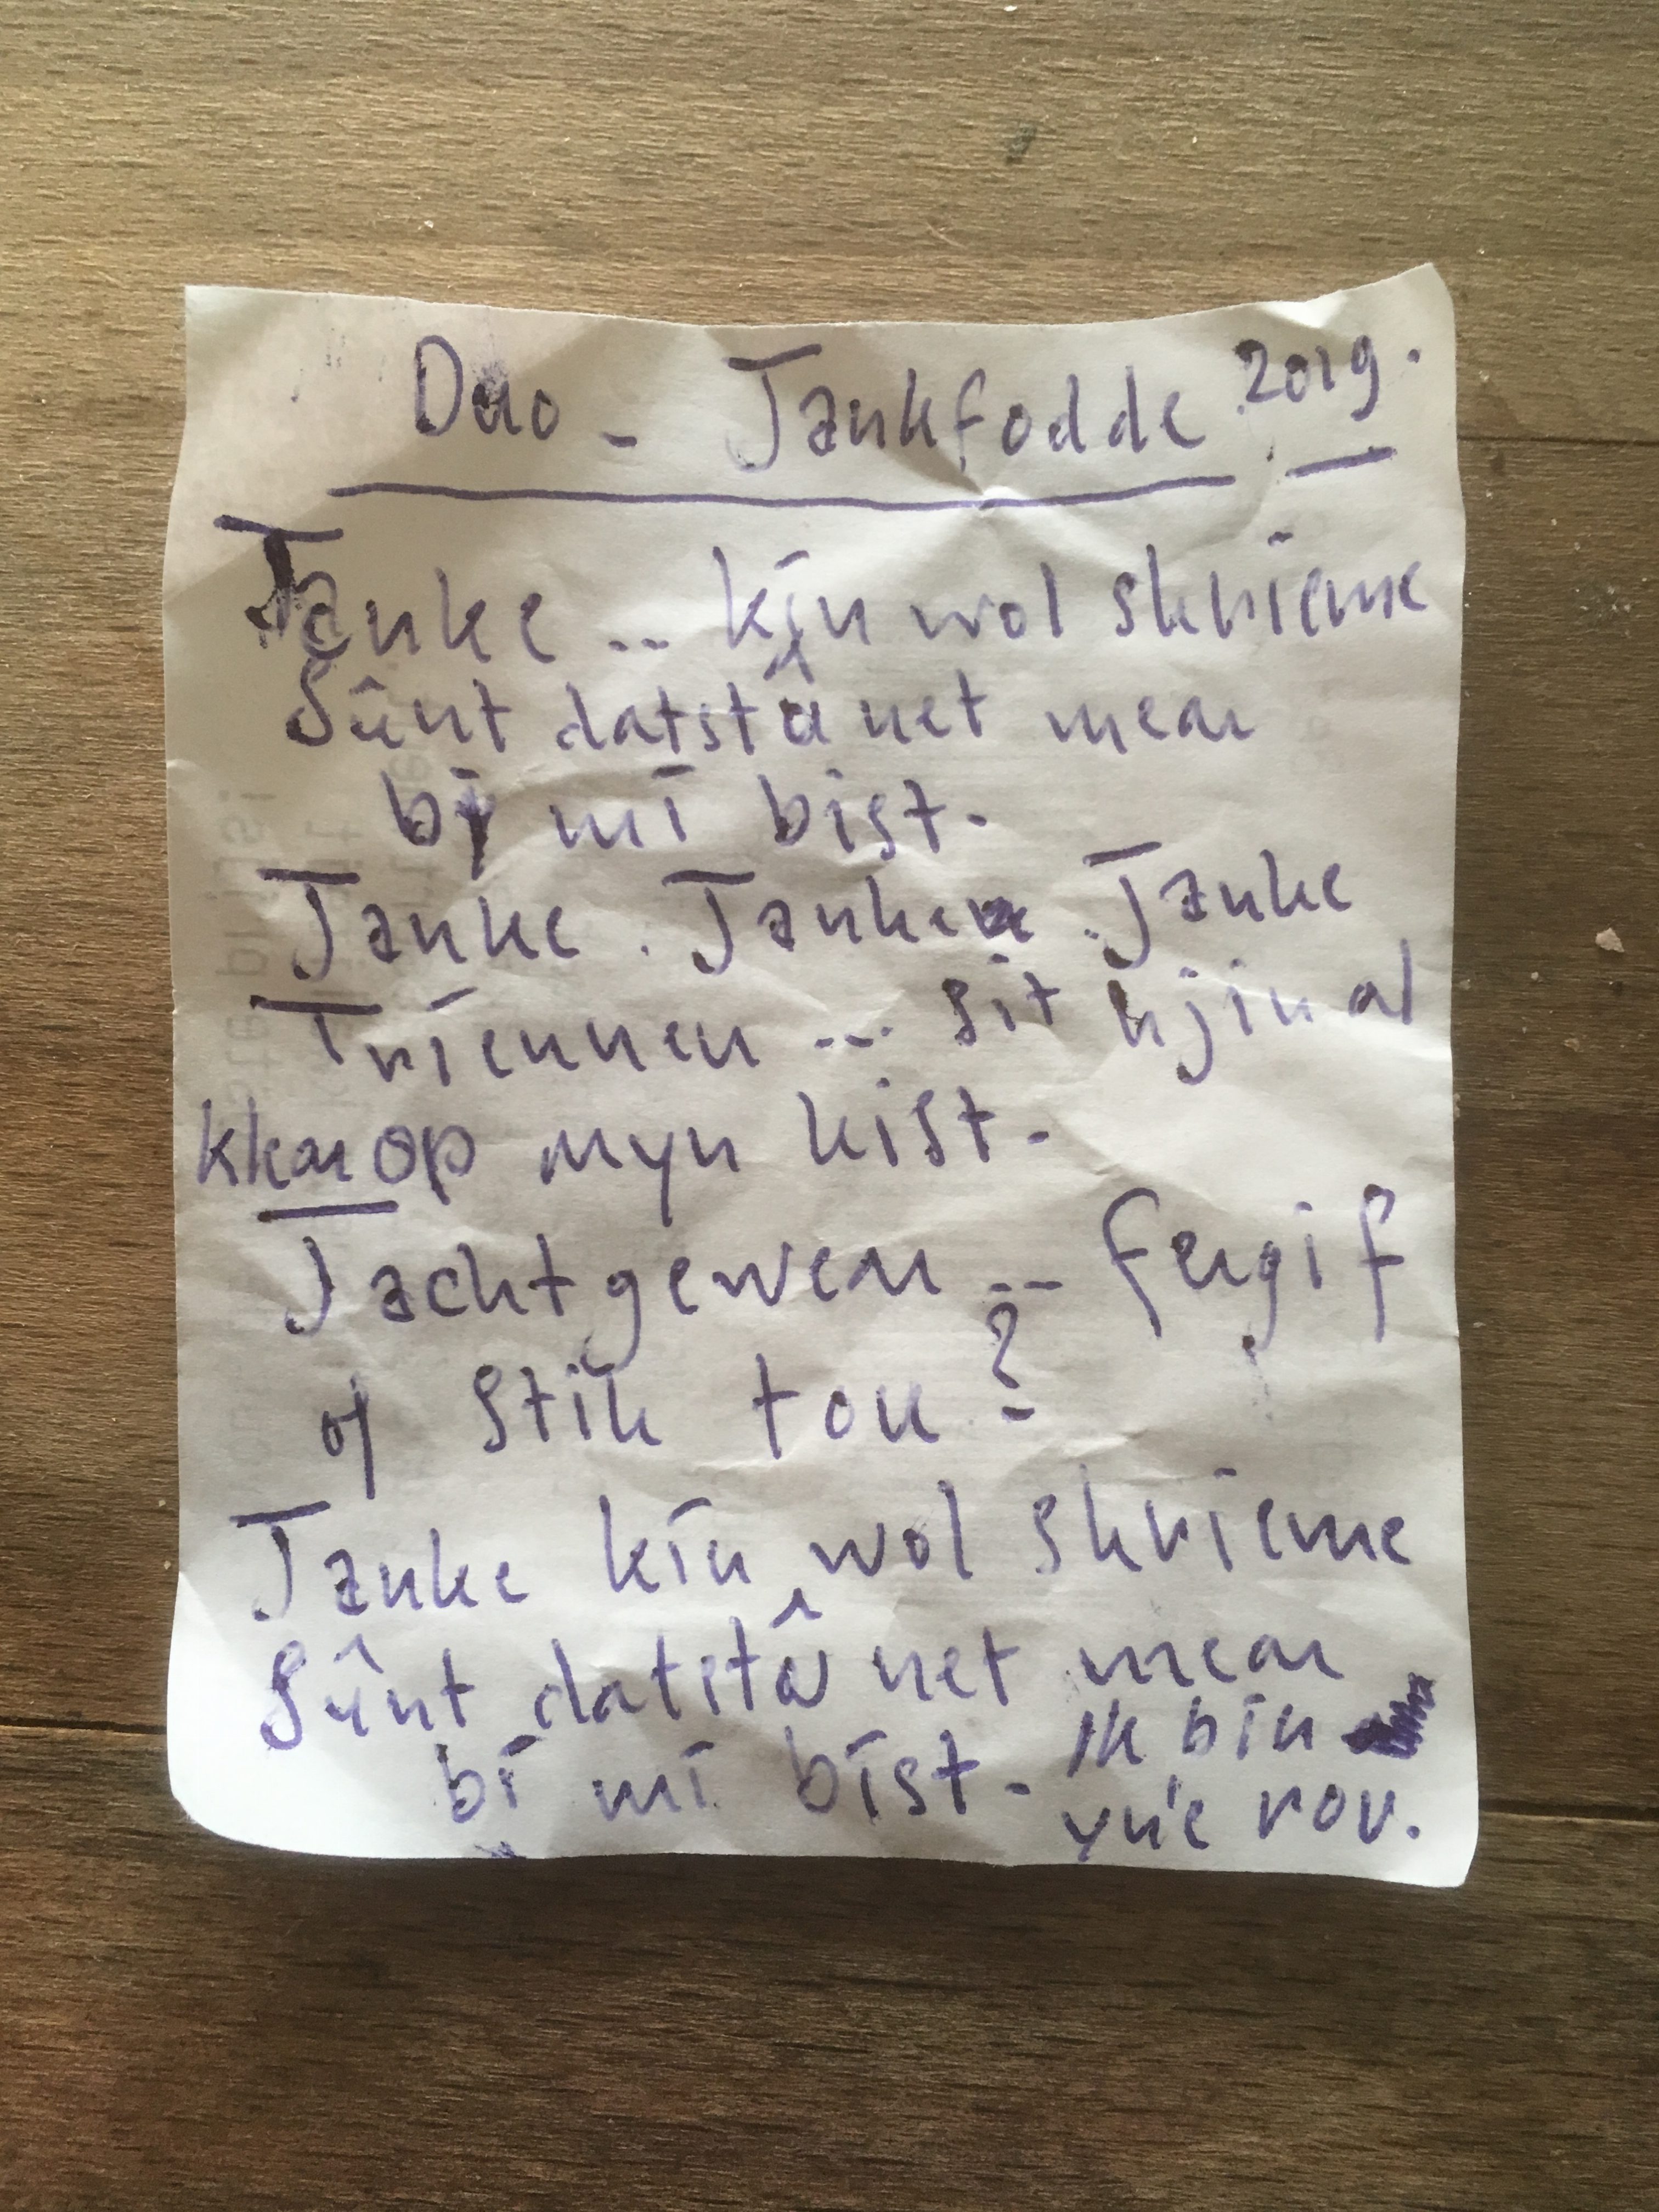 Duo - Jankfodde 2019.
Janke .. kin wol skrieme
Sûnt datstû net mear
bi mi bist.
Janke . Janke . Janke
Triennen ... sit njin al
kkar op myn kist.
Jachtgewear -- fergif
of stik tou?
Janke kin wol skrieme
Sûnt datstû net mear
bi mi bist. Ik bin
yn'e rou.